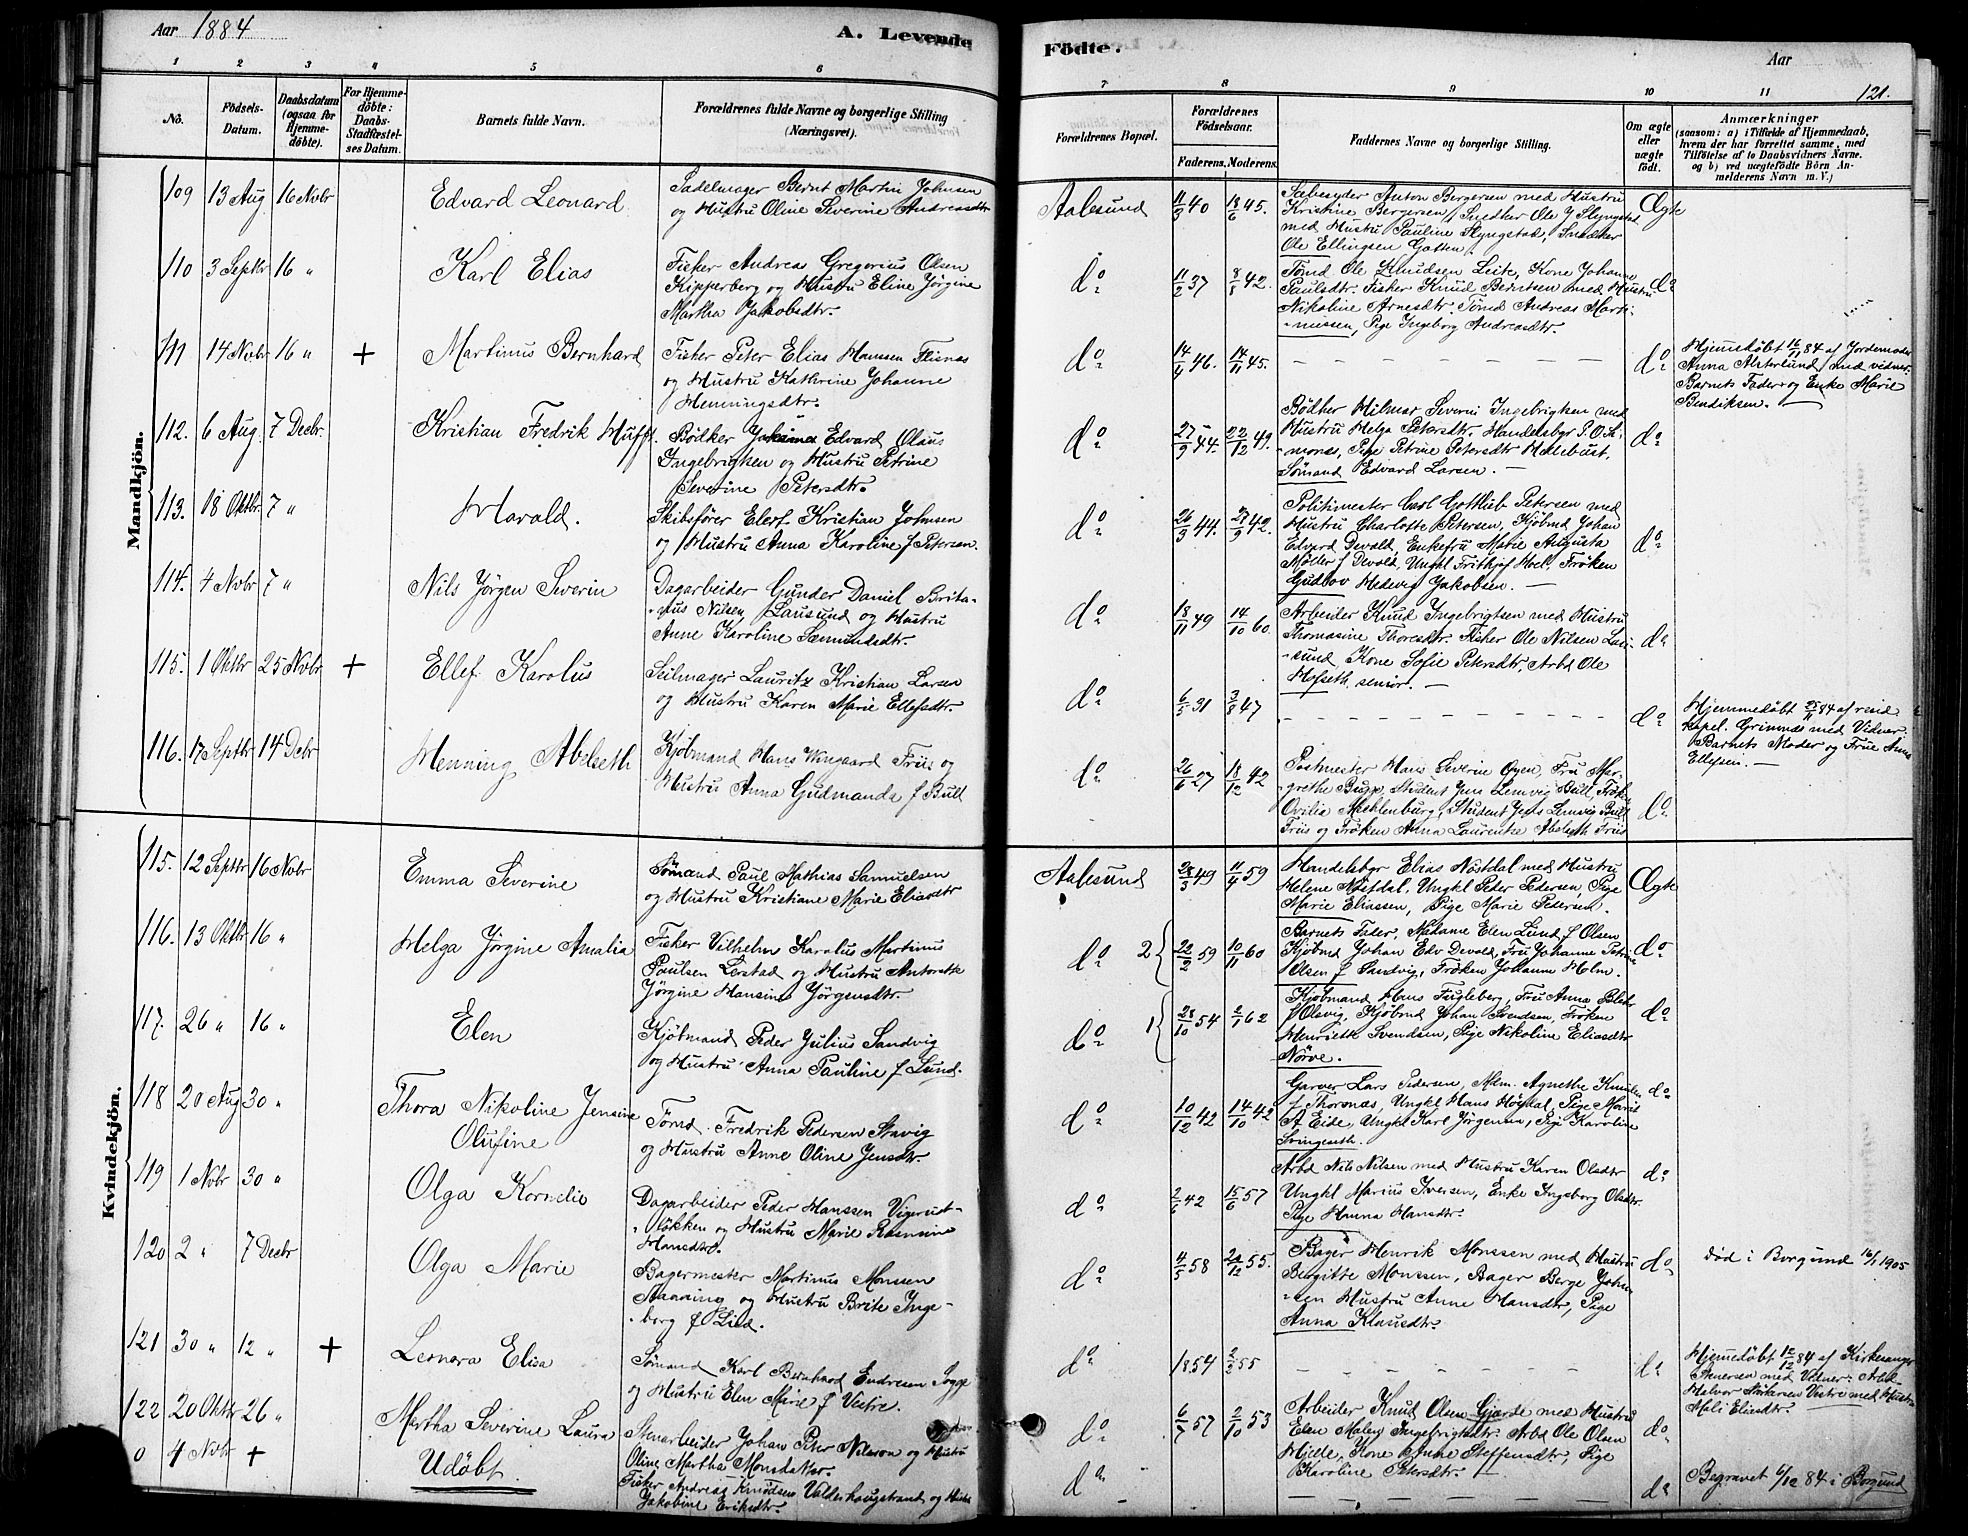 Aar 1884
A. Levende
Fødte.
Aar
121.
1 2 3 4 5 6 7 8 9 10 11
No.
Fødsels-
Datum.
Daabsdatum
(ogsaa for
Hjemme-
døbte).
For Hjemme-
døbte:
Daabs-
Stadfæstel-
ses Datum.
Barnets fulde Navn.
Forældrenes fulde Navne og borgerlige Stilling
(Næringsvei).
Forældrenes Bopæl.
Forældrenes
Fødselsaar.
Faderens. Moderens.
Faddernes Navne og borgerlige Stilling.
Om ægte
eller
uægte
født.
Anmærkninger
(saasom: a) i Tilfælde af Hjemmedaab,
hvem der har forrettet samme, med
Tilføielse af to Daabsvidners Navne.
og b) ved uægtefødte Børn An-
melderens Navn m. V.)
Mandkjøn.
109 13 Aug 16 Novbr Edvard Leonard
Sadelmager Bernt Martin Johnsen
og Hustru Oline Severine Andreasdtr
Aalesund 11/9 40 18/6 45.
Sæbesyder Anton Bergersen med Hustru
Kristine Bergersen, Snedker Ole J Slyngstad
med Hustru Pauline Slyngstad, Snedker
Ole Ellingsen Gatten
Ægte
110 3 Septbr 16 " Karl Elias
Fisker Andreas Gregorius Olsen
Kipperberg og Hustru Eline Jørgine
Martha Jakobsdtr.
do 11/2 37 8/8 42.
Tømd Ole Knudsen Leite, Kone Johanne
Paulsdtr. Fisker Knud Berntsen med Hustru
Nikoline Arnesdtr. Tømd Andreas Marti-
-nussen, Pige Ingeborg Andreasdtr.
do
111 14 Novbr 16 " + Martinus Bernhard
Fisker Peter Elias Hansen Flisnæs
og Hustru Kathrine Johanne
Henningsdtr.
do 14/4 46. 14/11 45.
do
Hjemdøbt 16/11 84 af Jordemoder
Anna Alsterlund med vidner
Barnets Fader og Enke Marie
Bendiksen.
112. 6 Aug. 7 Decbr. Kristian Fredrik Huff
Bødker Edvard Olaus
Ingebrigtsen og Hustru Petrine
Severine Petersdtr.
do 27/9 44. 22/12 49.
Bødker Hilmar Severin Ingebrigtsen med
Hustru Helga Petersdtr. Handelsbgr P. O. Si-
monæs, Pige Petrine Petersdtr Mellebust,
Sømand Edvard Larsen.
do
113. 18 Oktbr. 7 " Harald.
Skibsfører Elert Kristian Johnsen
og Hustru Anna Karoline f Petersen.
do 26/3 44. 27/9 42.
Politimester Carl Gottlieb Petersen med
Hustru Charlotte Petersen, Kjøbmd Johan
Edvard Devold, Enkefru Marie Augusta
Møller f Devold, Ungkl Frithjof Hoel, Frøken
Gudlov Hedevig Jakobsen.
do
114. 4 Novbr 7 " Nils Jørgen Severin
Dagarbeider Gunder Daniel Brita-
-nus Nilsen Lausund og Hustru
Anne Karoline Sæmundsdtr.
do 18/11 49 14/10 60.
Arbeider Knud Ingebrigtsen med Hustru
Thomasine Thoresdtr. Fisker Ole Nilsen Lau-
-sund, Kone Sofie Petersdtr, Arbd Ole
Hofseth senior.
do
115. 1 Oktbr 25 Novbr + Ellef Karolus
Seilmager Lauritz Kristian Larsen
og Hustru Karen Marie Ellefsdtr.
do 6/5 31 3/8 47
do
Hjemmedøbt 25/11 84 af resid
kapel. Grimnæs med Vidner
Barnets Moder og Frue Anna
Ellefsen.
116. 17 Septbr 14 Dcbr Henning Abelseth
Kjøbmand Hans Wingaard Friis og
Hustru Anna Gudmanda f Bull
do 26/6 27 18/12 42
Postmester Hans Severin Øyen, Fru Mar-
grethe Bugge, Student Jens Lemvig Bull, Frøken
Ovilia Mecklenburg, Student Jens Lemvig Bull
Friis og Frøken Anna Laurentze Abelseth Friis
do
Kvindekjøn.
115. 12 Septbr 16 Novbr Emma Severine
Sømand Paul Mathias Samuelsen
og Hustru Kristiane Marie Eliasdtr
Aalesund 28/3 49 11/4 59
Handelsbgr Elias Nøstdal med Hustru
Helene Nøstdal, Ungkl Peder Pedersen, Pige
Marie Eliassen, Pige Marie Pedersen.
Ægte
116. 13 Oktbr 16 " Helga Jørgine Amalia
Fisker Vilhelm Karolus Martinus
Paulsen Lerstad og Hustru Antonette
Jørgine Hansine Jørgensdtr.
do 2 22/2 59 10/11 60
Barnets Fader, Madame Elen Lund f Olsen
Kjøbmd Johan Edv Devold, Fru Johanne Petrine
Olsen f Sandvig, Frøken Johanne Holm.
do
117. 26 " 16 " Elen
Kjøbmand Peder Julius Sandvig
og Hustru Anna Pauline f Lund.
do 1 28/10 54 2/1 62
Kjøbmand Hans Fugleberg, Fru Anna
f Olsvig, Kjøbmd Johan Svendsen, Frøken
Henriette Svendsen, Pige Nikoline Eliasdtr
Nørve.
do
118 20 Aug 30 " Thora Nikoline Jensine
Olufine
Tømd. Fredrik Pedersen Stavig
og Hustru Anne Oline Jensdtr.
do 10/12 42 14/10 42
Garver Lars Pedersen, Mdm. Agnethe Knudsen
f Thorsnæs, Ungkl Hans Høydal, Pige Marit
A Eide, Ungkl Karl Jørgensen, Pige Karoline
Svingseth.
do
119 1 Novbr 30 " Olga Kornelia
Dagarbeider Peder Hanssen Vigerust-
-løkken og Hustru Marie Rasmine
Hansdtr.
do 2/6 42 15/6 57
Arbd Nils Nilsen med Hustru Karen Olsdtr
Ungkl Marius Iversen, Enke Ingeborg Olsdtr.
Pige Hanna Hansdtr.
do
120 2 " 7 Decbr Olga Marie
Bagermester Martinus Monssen
Standning og Hustru Brite Inge-
-borg f Lied.
do 4/5 58 22/12 55.
Bager Henrik Monssen med Hustru
Bergitte Monssen, Bager Berge Johan-
-sen Hustru Anne Hansdtr, Pige
Anna Klausdtr.
do
død i Borgund 16/1 1905
121 30 " 12 " + Leonora Elisa
Sømand Karl Bernhard Endresen Togge
og Hustru Elen Marie f Vestre.
do 1854 2/2 55
do
Hjemedøbt 12/12 84 af Kirkesanger
Stenersen med Vidner: Arbd-
Halvor Vestre med Hustru
Meli Eliesdtr.
122 20 Oktbr 26 " Martha Severine Laura
Stenarbeider Johan Peter Nilsson og Hustru
Oline Martha Monsdatter.
do 6/7 57 2/10 53
Arbeider Knud Olsen Gjærde med Hustru
Elen Malene Ingebrigtsdtr. Arbd Ole Olsen
Hjelle, Kone Anne Steffensdtr, Pige
Karoline Petersdtr.
do
0 4 Novbr + Udøbt
Fisker Andreas Knudsen Valderhaugstrand og Hustru
Jakobine Eriksdtr.
do
do
Begravet 6/12 84 i Borgund